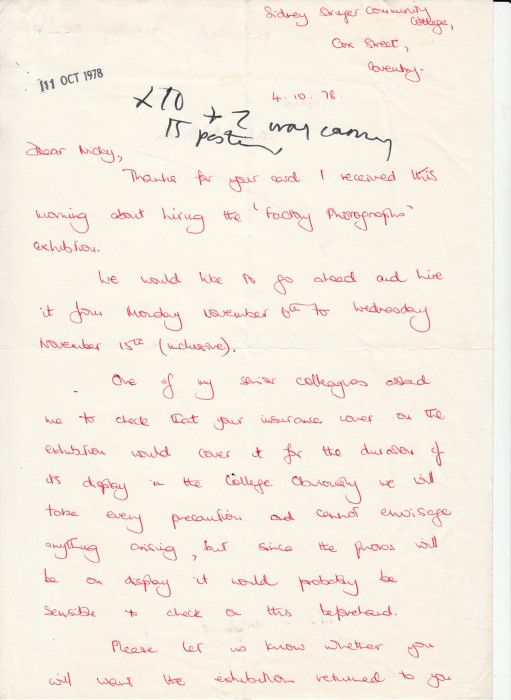 Sidney Stringer Community
College,
Cox Street,
Coventry.
11 OCT 1978
4.10.78.
£10 + 2 way carry
15 posters
Dear Nicky,
Thanks for your card I received this
morning about hiring the 'Factory Photographs'
exhibition.
We would like to go ahead and hire
it from Monday November 6th to Wednesday
November 15th (inclusive).
One of my senior colleagues asked
me to check that your insurance cover on the
exhibition would cover it for the duration of
its display in the College. Obviously we will
take every precaution and cannot envisage
anything arising, but since the photos will
be on display it would probably be
sensible to check on this beforehand.
Please let us know whether you
will want the exhibition returned to you